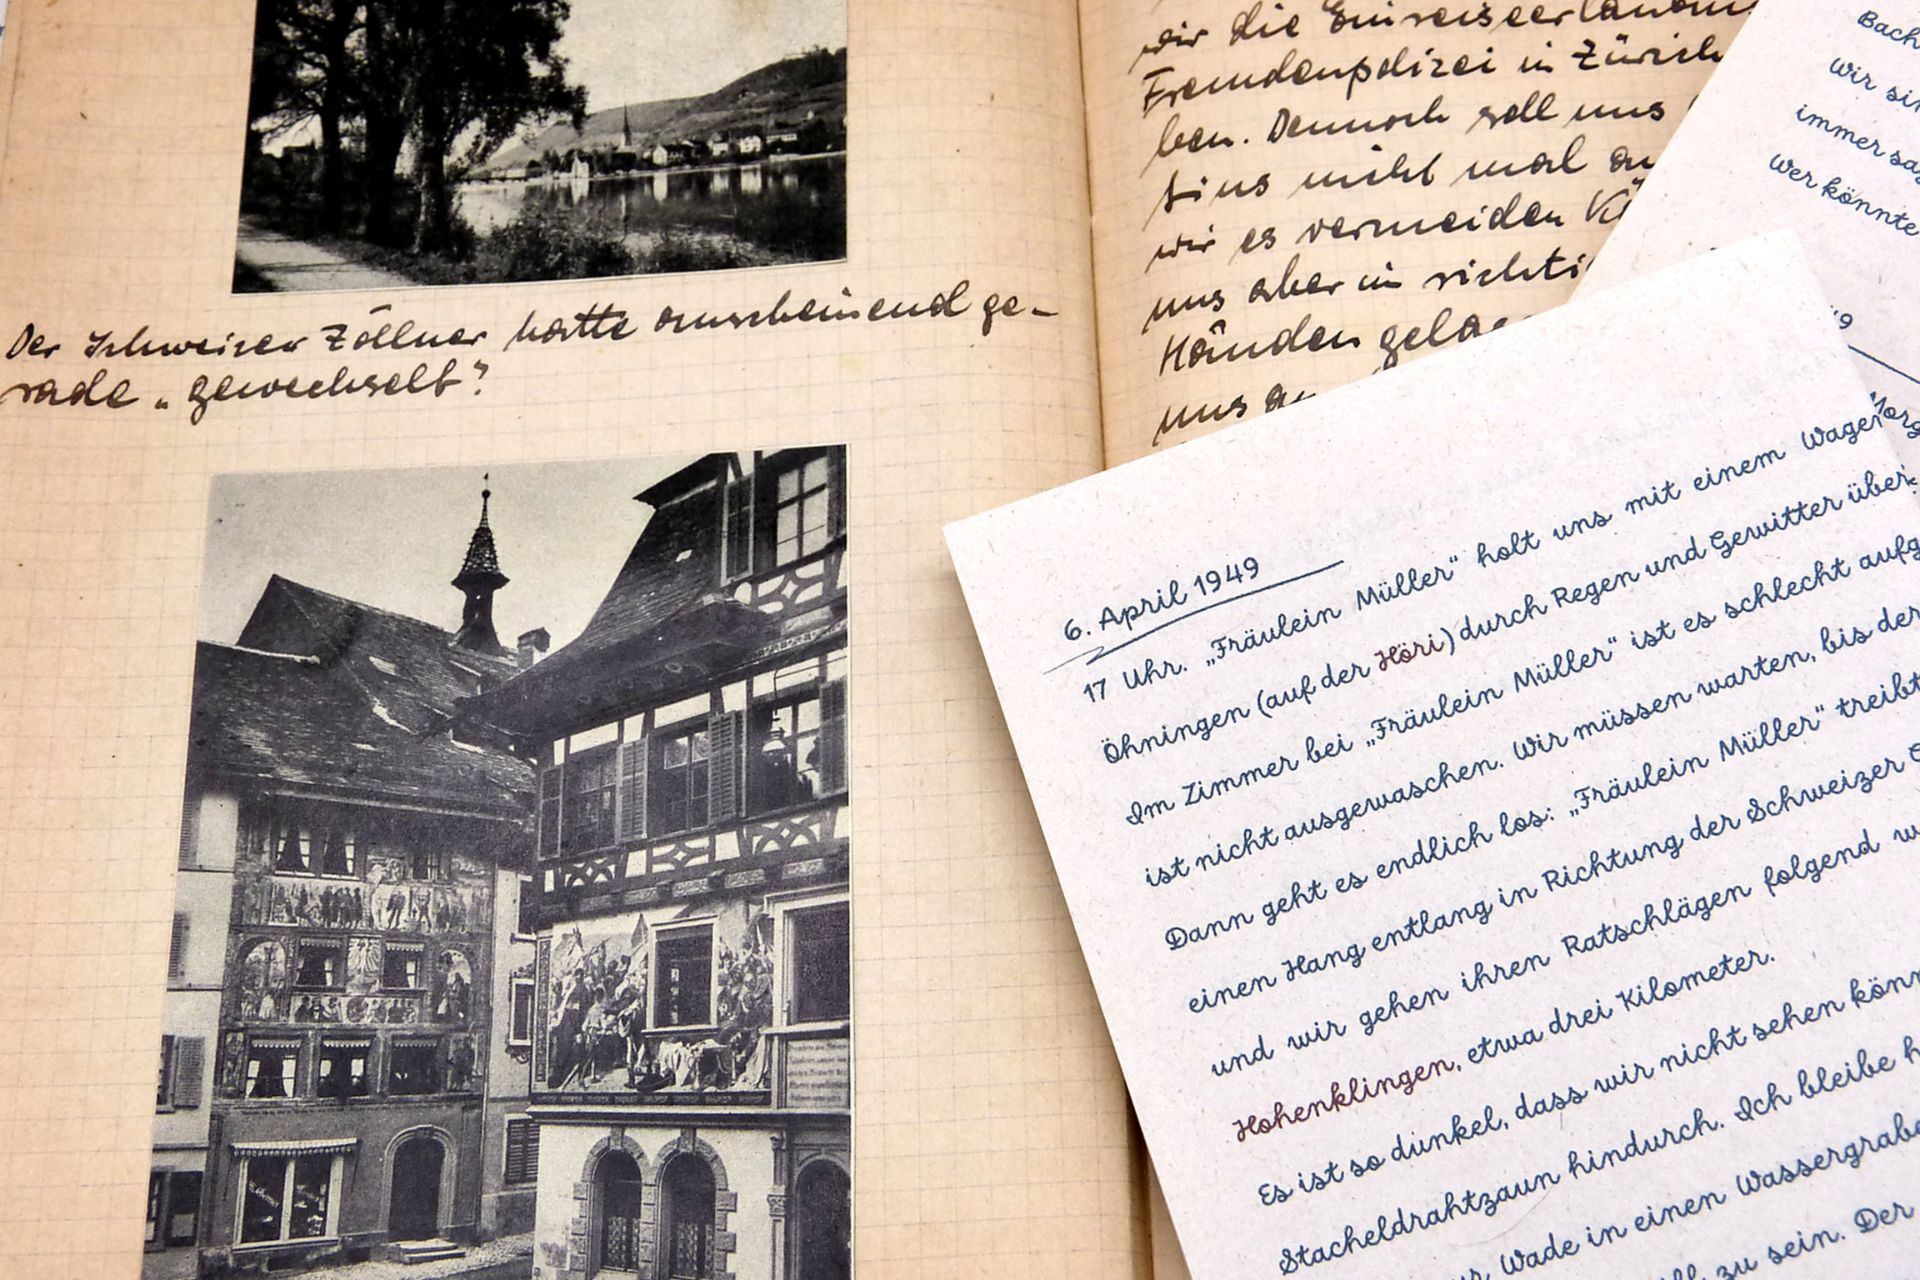 Der Schweizer Zöllner hatte anscheinend ge-
rade „gewechselt?
wir die Einreiseerlaubnis
Fremdenpolizei in Zürich
ben. Dennoch soll uns
wir es vermeiden
uns aber in richti
Händen gela
uns
Bach
Wir sin
immer sa
Wer könnte
6. April 1949
17 Uhr. „Fräulein Müller“ holt uns mit einem Wagen
Öhningen (auf der Höri) durch Regen und Gewitter über
Im Zimmer bei „Fräulein Müller“ ist es schlecht aufg
ist nicht ausgewaschen. Wir müssen warten, bis der
Dann geht es endlich los: „Fräulein Müller“ treibt
einen Hang entlang in Richtung der Schweizer G
und wir gehen ihren Ratschlägen folgend w
Hohenklingen, etwa drei Kilometer.
Es ist so dunkel, dass wir nicht sehen könn
Stacheldrahtzaun hindurch. Ich bleibe h
ur Wade in einen Wassergrabe
zu sein. Der